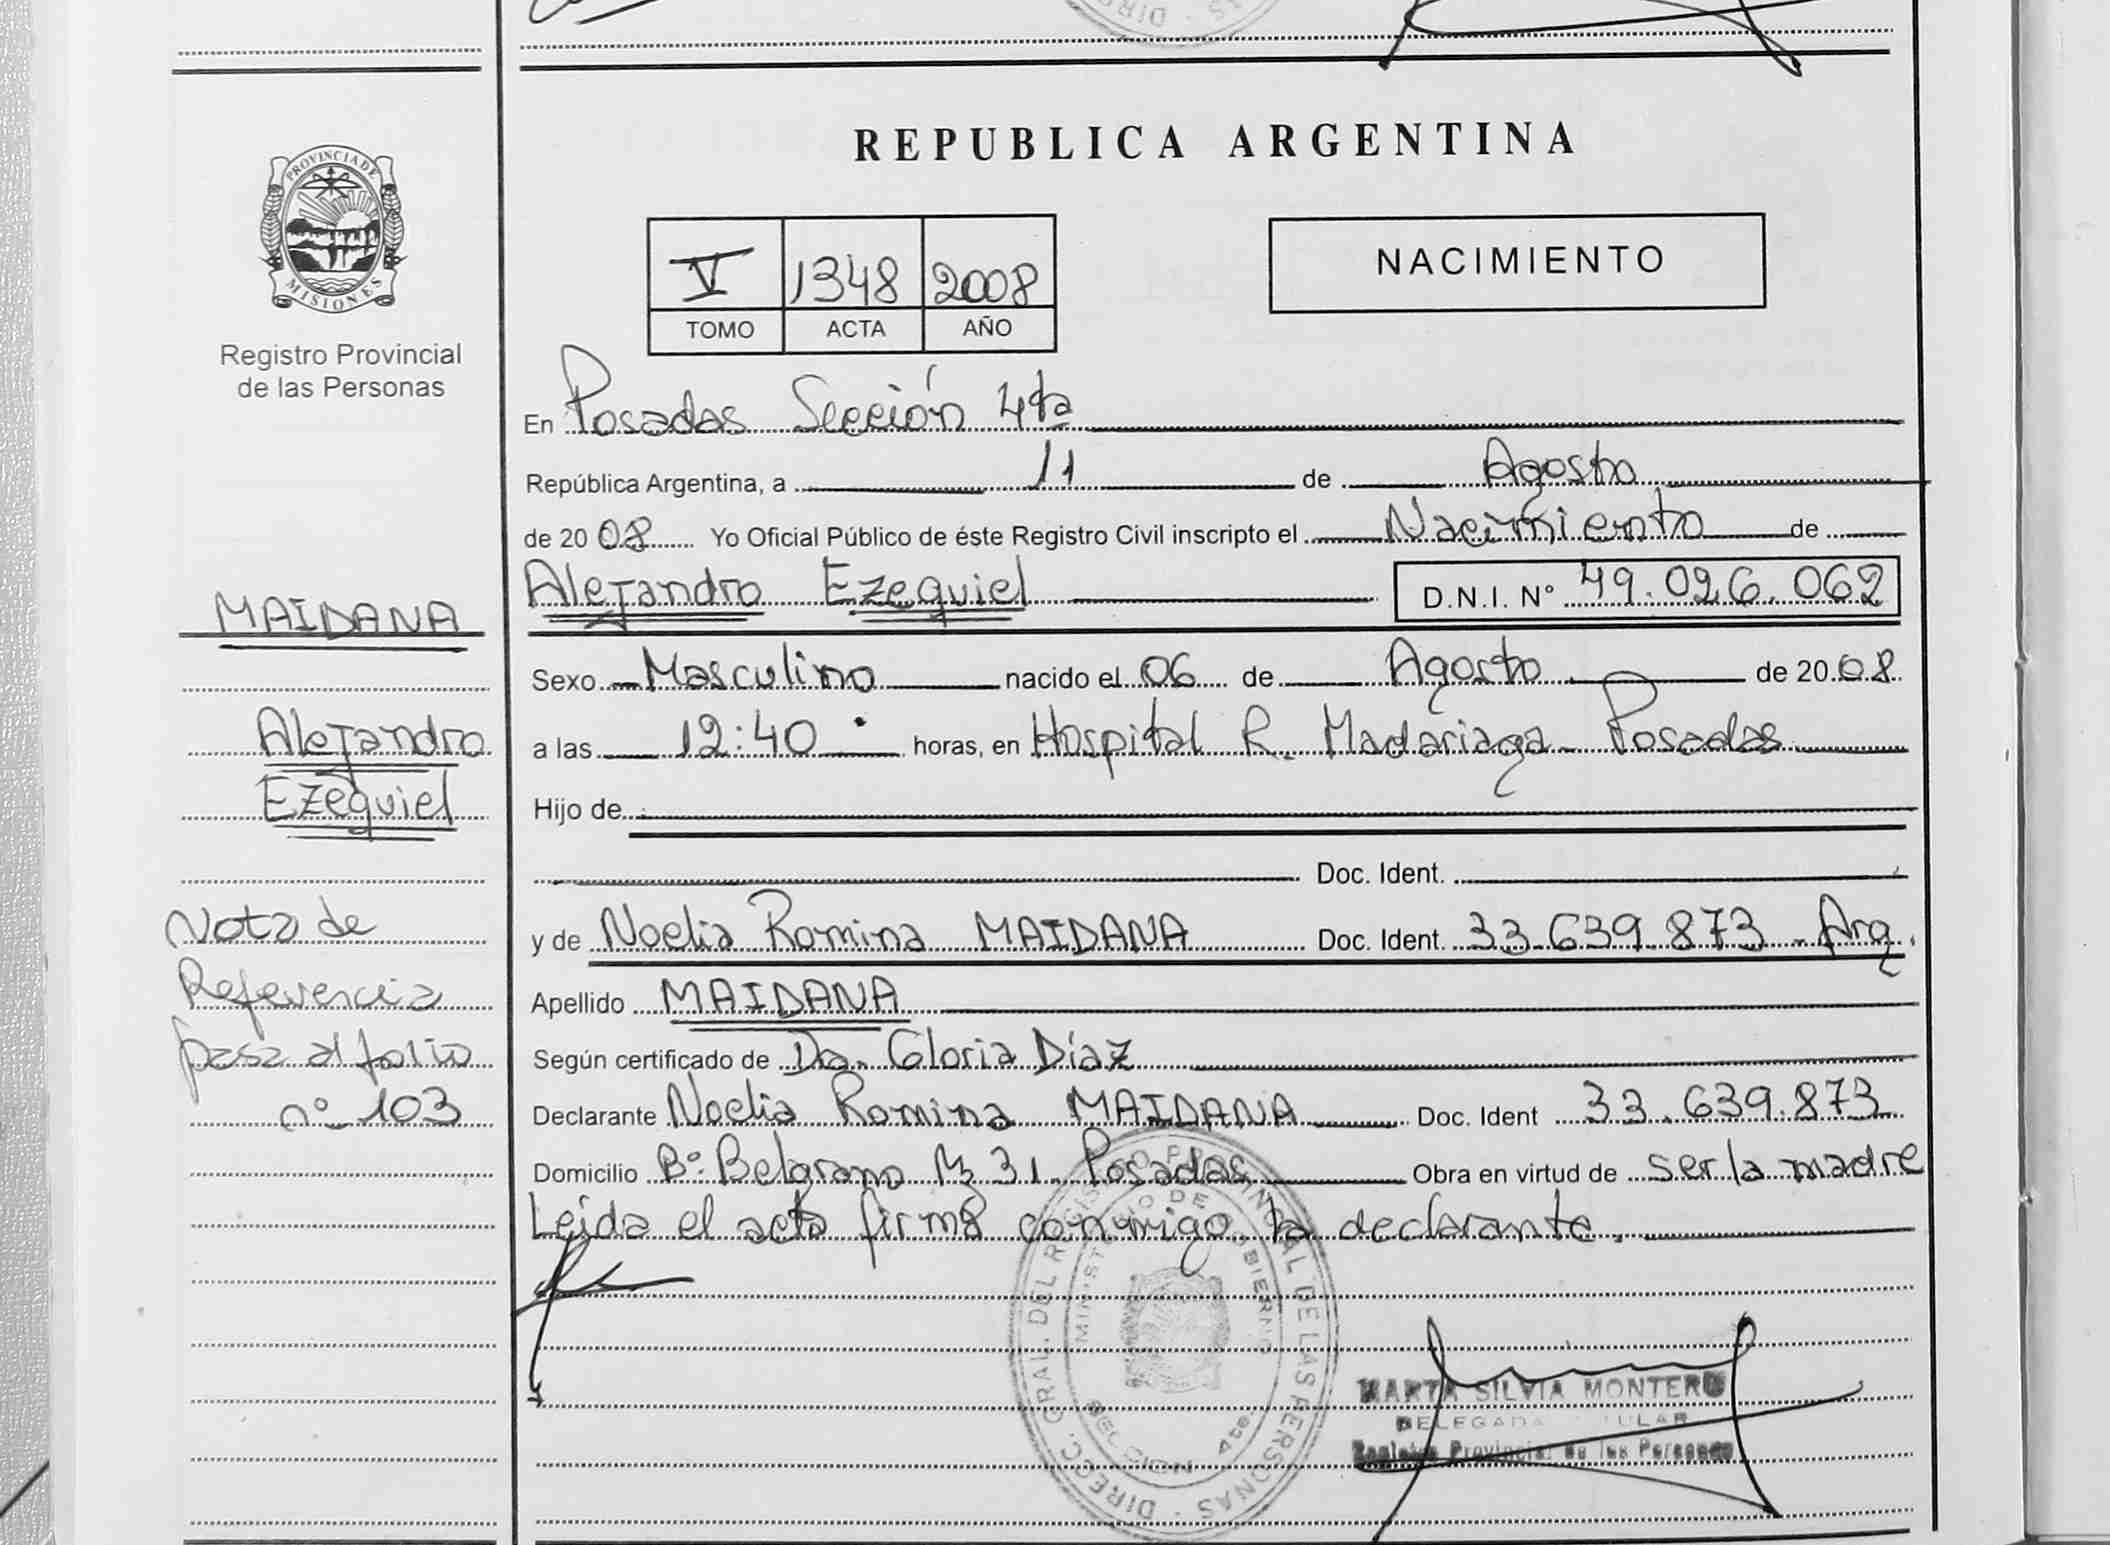 PROVINCIA DE
MISIONES
Registro Provincial
de las Personas
MAIDANA
Alejandro
Ezequiel
Nota de
Referencia
pasa al folio
nº 103
REPUBLICA ARGENTINA
V 1348 2008
TOMO ACTA AÑO
NACIMIENTO
En Posadas Sección 4ta
República Argentina, a 11 de Agosto
de 20 08 Yo Oficial Público de éste Registro Civil inscripto el Nacimiento de
Alejandro Ezequiel D.N.I. Nº 49.026.062
Sexo Masculino nacido el 06 de Agosto de 20 08
a las 12:40 horas, en Hospital R. Madariaga Posadas
Hijo de
Doc. Ident.
y de Noelia Romina MAIDANA Doc. Ident. 33.639.873 - Arg.
Apellido MAIDANA
Según certificado de Dra. Gloria Díaz
Declarante Noelia Romina MAIDANA Doc. Ident 33.639.873
Domicilio Bº Belgrano Mz 31. Posadas Obra en virtud de ser la madre
Leída el acta firmó conmigo la declarante.
DIRECC. GRAL. DEL REGISTRO PROVINCIAL DE LAS PERSONAS
MINISTERIO DE GOBIERNO
SECCION 4ta.
MARTA SILVIA MONTERO
DELEGADA TITULAR
Registro Provincial de las Personas